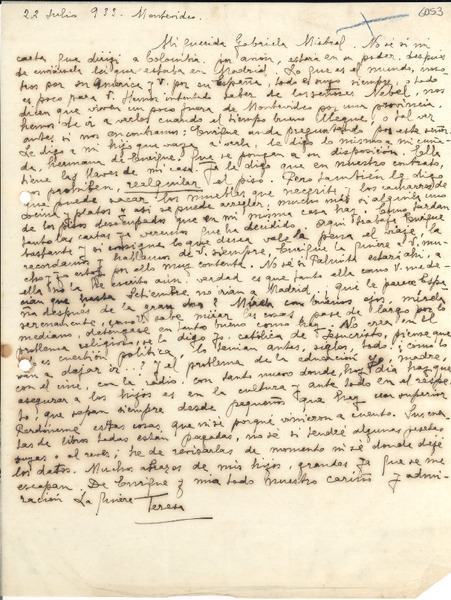 22 Julio 933. Montevideo.
6053
Mi querida Gabriela Mistral. No sé si mi
carta que dirigí a Colombia, por avión, estará en su poder, después
de enviársela leí que estaba en Madrid. Lo que es el mundo, nosotros
por su América y V. por su España, todo el suyo siempre, y todo
es poco para V. Hemos intentado saber de los señores Nebel, nos
dicen que viven un poco fuera de Montevideo por una provincia.
hemos de ir a verlos cuando el tiempo bueno llegue, o tal vez
antes si nos encontramos; Enrique anda preguntando por este señor.
Le digo a mi hijo que vaya a verla, le digo lo mismo a mi cuñada,
hermana de Enrique. Que se pongan a su disposición. Ella
tiene las llaves de mi casa. Ya le digo que en nuestro contrato,
nos prohíben, realquilar el piso. Pero también la digo
que puede sacar los muebles que necesite y los cacharros de
cocina y platos y así se puede arreglar, mucho más si alquila uno
de los pisos desalquilados que en mi misma casa hay. Como tardan
tanto las cartas ya veremos que ha decidido. Aquí trabaja Enrique
bastante y si consigue lo que desea vale la pena el viaje, la
recordamos y hablamos de V. siempre. Enrique la quiere a V. mu-
cho, ya estoy por ello muy contenta. No sé si Palmita estará ahí, a
ella no la he escrito aún. verdad es que tanto ella como V. me de-
cían que hasta Setiembre no irían a Madrid. ¿qué le parece Espa-
ña después de la gran cosa? Mírela con buenos ojos, mírela
serenamente, como V. sabe mirar las cosas pase de largo por lo
mediano, deténgase en tanto bueno como hay. No crea en el
problema religioso, se lo digo yo, católica de Jesucristo, piense que
es cuestión política. Lo tenían antes, siglos, todo, ¿como lo
van a dejar ir...? Y al problema de la educación yo, madre,
con el cine, con la radio, con tanto nuevo donde, hoy día hay que
asegurar a los hijos es en la cultura y ante todo en el respe-
to, que sepan siempre desde pequeños que hay un superior
Perdóneme estas cosas que no sé porqué vinieron a cuento. Sus cuen-
tas de libros todas están pagadas, no sé si tendré algunas pesetas
suyas o al revés; he de revisarlas de momento ni sé donde dejé
los datos. Muchos abrazos de mis hijos, grandes ya que se me
escapan. De Enrique y mía todo nuestro cariño y admi-
ración La quiere Teresa